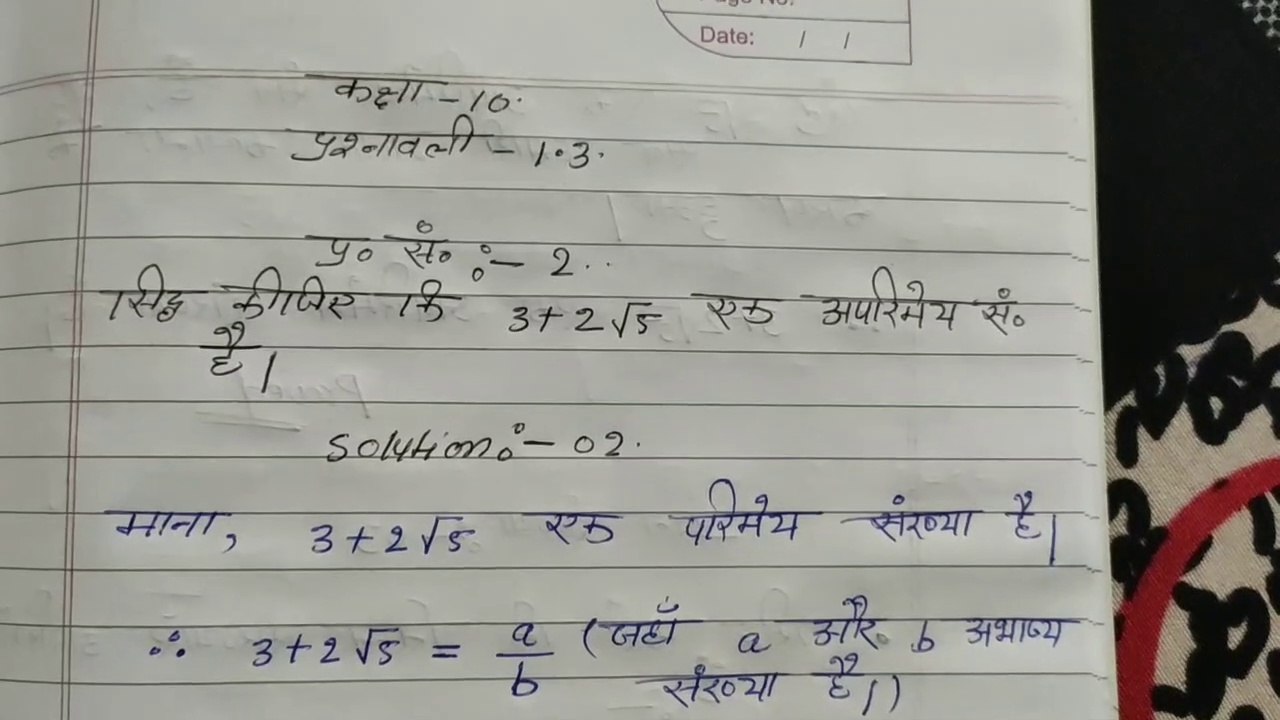 Date: / /
कक्षा - 10.
प्रश्नावली - 1.3.
प्र० सं० :- 2..
सिद्ध कीजिए कि 3+2√5 एक अपरिमेय सं०
है।
Solution :- 02.
माना, 3+2√5 एक परिमेय संख्या है।
∴ 3+2√5 = a/b (जहाँ a और b अभाज्य
संख्या है।)